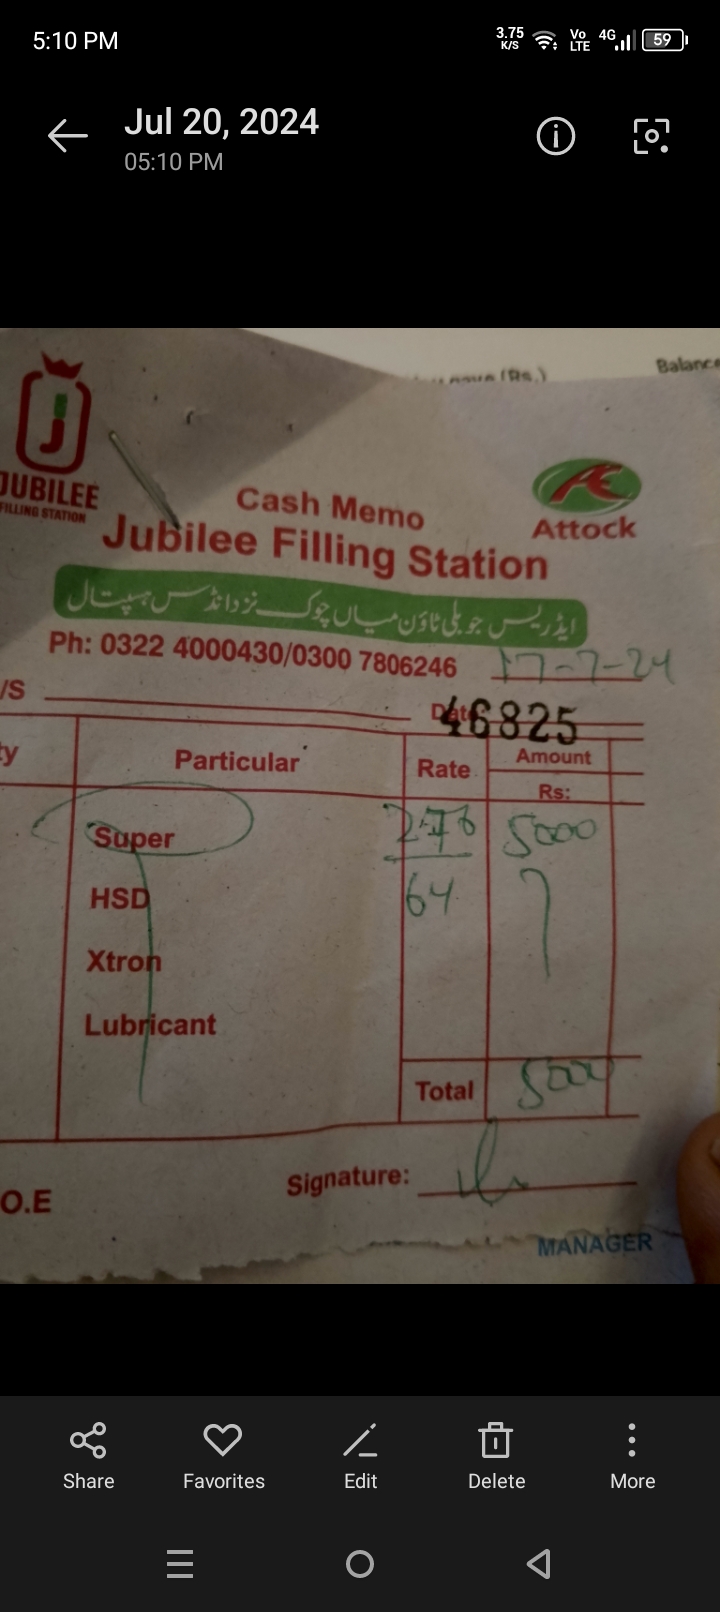 5:10 PM
3.75 K/S Vo LTE 4G 59
Jul 20, 2024
05:10 PM
(Rs.) Balance
JUBILEE
FILLING STATION
Cash Memo
Attock
Jubilee Filling Station
ایڈریس جوبلی ٹاؤن میاں چوک نزد انڈس ہسپتال
Ph: 0322 4000430/0300 7806246
17-7-24
/S
Date
46825
ty Particular Rate Amount
Rs:
Super 276 5000
HSD 64
Xtron
Lubricant
Total 5000
O.E Signature:
MANAGER
Share Favorites Edit Delete More